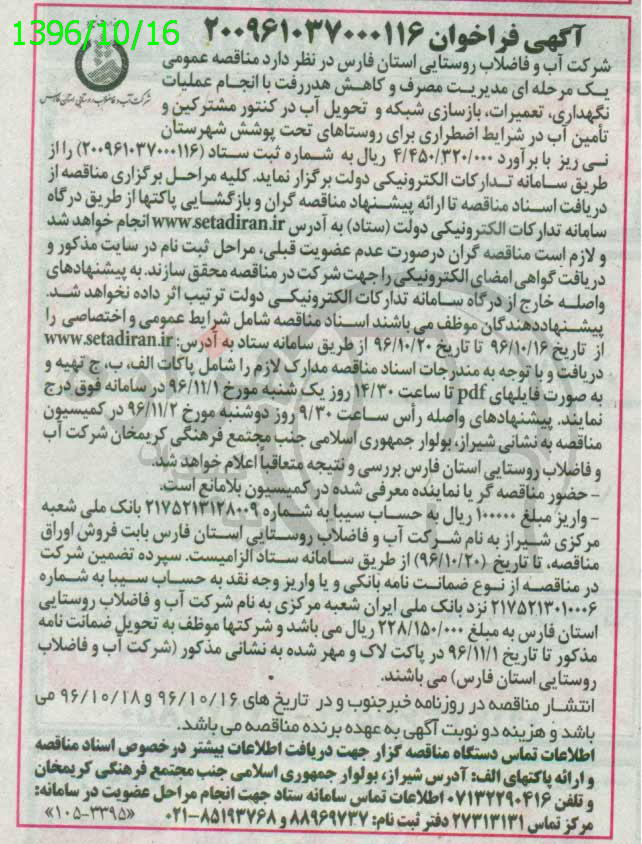 1396/10/16
آگهی فراخوان ۲۰۰۹۶۱۰۳۷۰۰۰۱۱۶
شرکت آب و فاضلاب روستایی استان فارس در نظر دارد مناقصه عمومی
یک مرحله ای مدیریت مصرف و کاهش هدررفت با انجام عملیات
نگهداری، تعمیرات، بازسازی شبکه و تحویل آب در کنتور مشترکین و
تأمین آب در شرایط اضطراری برای روستاهای تحت پوشش شهرستان
شرکت آب و فاضلاب روستایی استان فارس
نی ریز با برآورد ۴/۴۵۰/۳۲۰/۰۰۰ ریال به شماره ثبت ستاد (۲۰۰۹۶۱۰۳۷۰۰۰۱۱۶) را از
طریق سامانه تدارکات الکترونیکی دولت برگزار نماید. کلیه مراحل برگزاری مناقصه از
دریافت اسناد مناقصه تا ارائه پیشنهاد مناقصه گران و بازگشایی پاکتها از طریق درگاه
سامانه تدارکات الکترونیکی دولت (ستاد) به آدرس www.setadiran.ir انجام خواهد شد
و لازم است مناقصه گران درصورت عدم عضویت قبلی، مراحل ثبت نام در سایت مذکور و
دریافت گواهی امضای الکترونیکی را جهت شرکت در مناقصه محقق سازند. به پیشنهادهای
واصله خارج از درگاه سامانه تدارکات الکترونیکی دولت ترتیب اثر داده نخواهد شد.
پیشنهاددهندگان موظف می باشند اسناد مناقصه شامل شرایط عمومی و اختصاصی را
از تاریخ ۹۶/۱۰/۱۶ تا تاریخ ۹۶/۱۰/۲۰ از طریق سامانه ستاد به آدرس: www.setadiran.ir
دریافت و با توجه به مندرجات اسناد مناقصه مدارک لازم را شامل پاکات الف، ب، ج تهیه و
به صورت فایلهای pdf تا ساعت ۱۴/۳۰ روز یک شنبه مورخ ۹۶/۱۱/۱ در سامانه فوق درج
نمایند. پیشنهادهای واصله رأس ساعت ۹/۳۰ روز دوشنبه مورخ ۹۶/۱۱/۲ در کمیسیون
مناقصه به نشانی شیراز، بولوار جمهوری اسلامی جنب مجتمع فرهنگی کریمخان شرکت آب
و فاضلاب روستایی استان فارس بررسی و نتیجه متعاقباً اعلام خواهد شد.
- حضور مناقصه گر یا نماینده معرفی شده در کمیسیون بلامانع است.
- واریز مبلغ ۱۰۰۰۰۰ ریال به حساب سیبا به شماره ۲۱۷۵۲۱۳۱۲۸۰۰۹ بانک ملی شعبه
مرکزی شیراز به نام شرکت آب و فاضلاب روستایی استان فارس بابت فروش اوراق
مناقصه، تا تاریخ (۹۶/۱۰/۲۰) از طریق سامانه ستاد الزامیست. سپرده تضمین شرکت
در مناقصه از نوع ضمانت نامه بانکی و یا واریز وجه نقد به حساب سیبا به شماره
۲۱۷۵۲۱۳۰۱۰۰۰۶ نزد بانک ملی ایران شعبه مرکزی به نام شرکت آب و فاضلاب روستایی
استان فارس به مبلغ ۲۲۸/۱۵۰/۰۰۰ ریال می باشد و شرکتها موظف به تحویل ضمانت نامه
مذکور تا تاریخ ۹۶/۱۱/۱ در پاکت لاک و مهر شده به نشانی مذکور (شرکت آب و فاضلاب
روستایی استان فارس) می باشند.
انتشار مناقصه در روزنامه خبرجنوب و در تاریخ های ۹۶/۱۰/۱۶ و ۹۶/۱۰/۱۸ می
باشد و هزینه دو نوبت آگهی به عهده برنده مناقصه می باشد.
اطلاعات تماس دستگاه مناقصه گزار جهت دریافت اطلاعات بیشتر در خصوص اسناد مناقصه
و ارائه پاکتهای الف: آدرس شیراز، بولوار جمهوری اسلامی جنب مجتمع فرهنگی کریمخان
و تلفن ۰۷۱۳۲۲۹۰۴۱۶ اطلاعات تماس سامانه ستاد جهت انجام مراحل عضویت در سامانه:
مرکز تماس ۲۷۳۱۳۱۳۱ دفتر ثبت نام: ۸۸۹۶۹۷۳۷ و ۸۵۱۹۳۷۶۸-۰۲۱ «۱۰۵-۳۳۹۵»